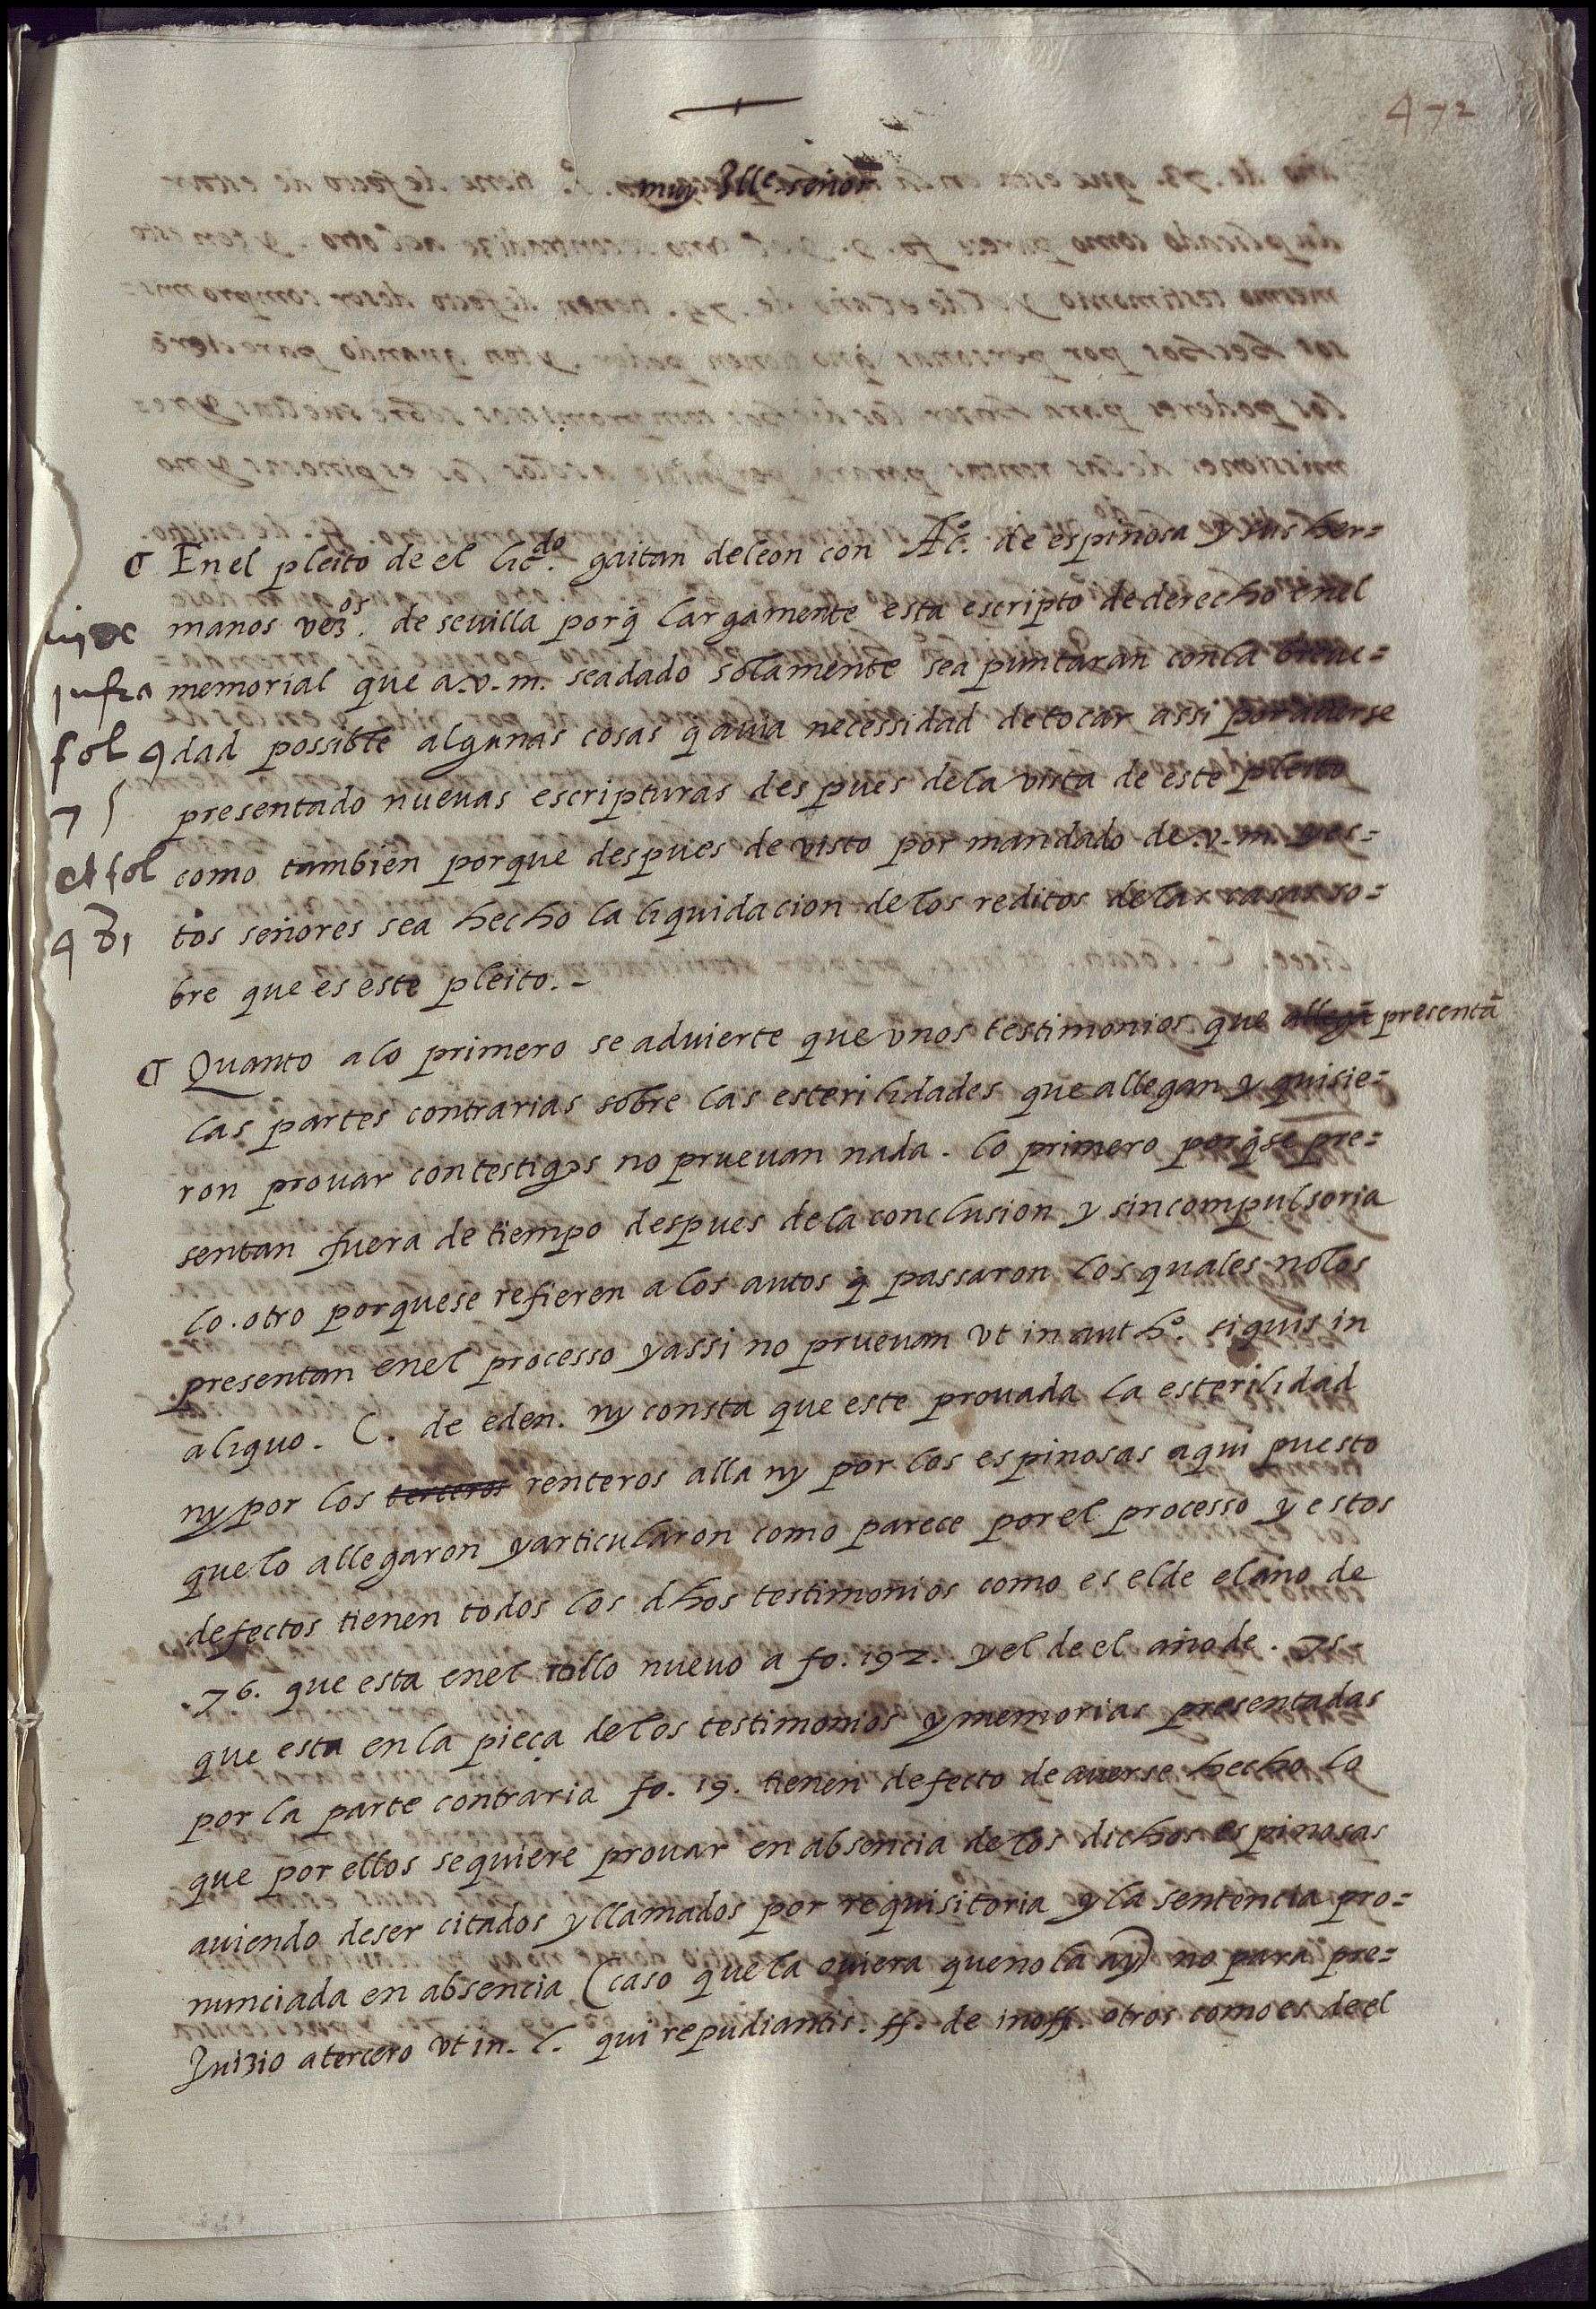 472
muy Ille señor
¶ En el pleito de el licdo. gaitan de leon con Alº. de espinosa y sus her=
manos vezºs. de seuilla porq̄ largamente esta escripto de derecho en el
memorial que a.v.m. se a dado solamente se apuntaran con la breue=
dad possible algunas cosas q̄ auia necessidad de tocar assi por auerse
presentado nueuas escripturas despues de la vista de este pleito
como tambien porque despues de visto por mandado de .v.m. y es=
tos señores se a hecho la liquidacion de los reditos de las casas so=
bre que es este pleito.-
infra
fol 4
75
et fol
481
¶ Quanto a lo primero se aduierte que vnos testimonios que allegā presentā
las partes contrarias sobre las esterilidades que allegan y quisie=
ron prouar con testigos no prueuan nada. lo primero porq̄ se pre=
sentan fuera de tiempo despues de la conclusion y sin compulsoria
lo. otro porque se refieren a los autos q̄ passaron los quales no los
presentan en el processo y assi no prueuan vt in auth. siquis in
aliquo. C. de eden. ny consta que este prouada la esterilidad
ny por los terceros renteros alla ny por los espinosas aqui puesto
que lo allegaron y articularon como parece por el processo y estos
defectos tienen todos los dhos testimonios como es el de el año de
.76. que esta en el rollo nueuo a fo. 192. y el de el año de .75.
que esta en la pieça de los testimonios y memorias presentadas
por la parte contraria fo. 19. tienen defecto de auerse hecho lo
que por ellos se quiere prouar en absencia de los dichos espinosas
auiendo de ser citados y llamados por requisitoria y la sentencia pro=
nunciada en absencia (caso que la ouiera que no la ay) no para pre=
Juizio a tercero vt in. l. qui repudiantis. ff. de inoff. otros como es de el